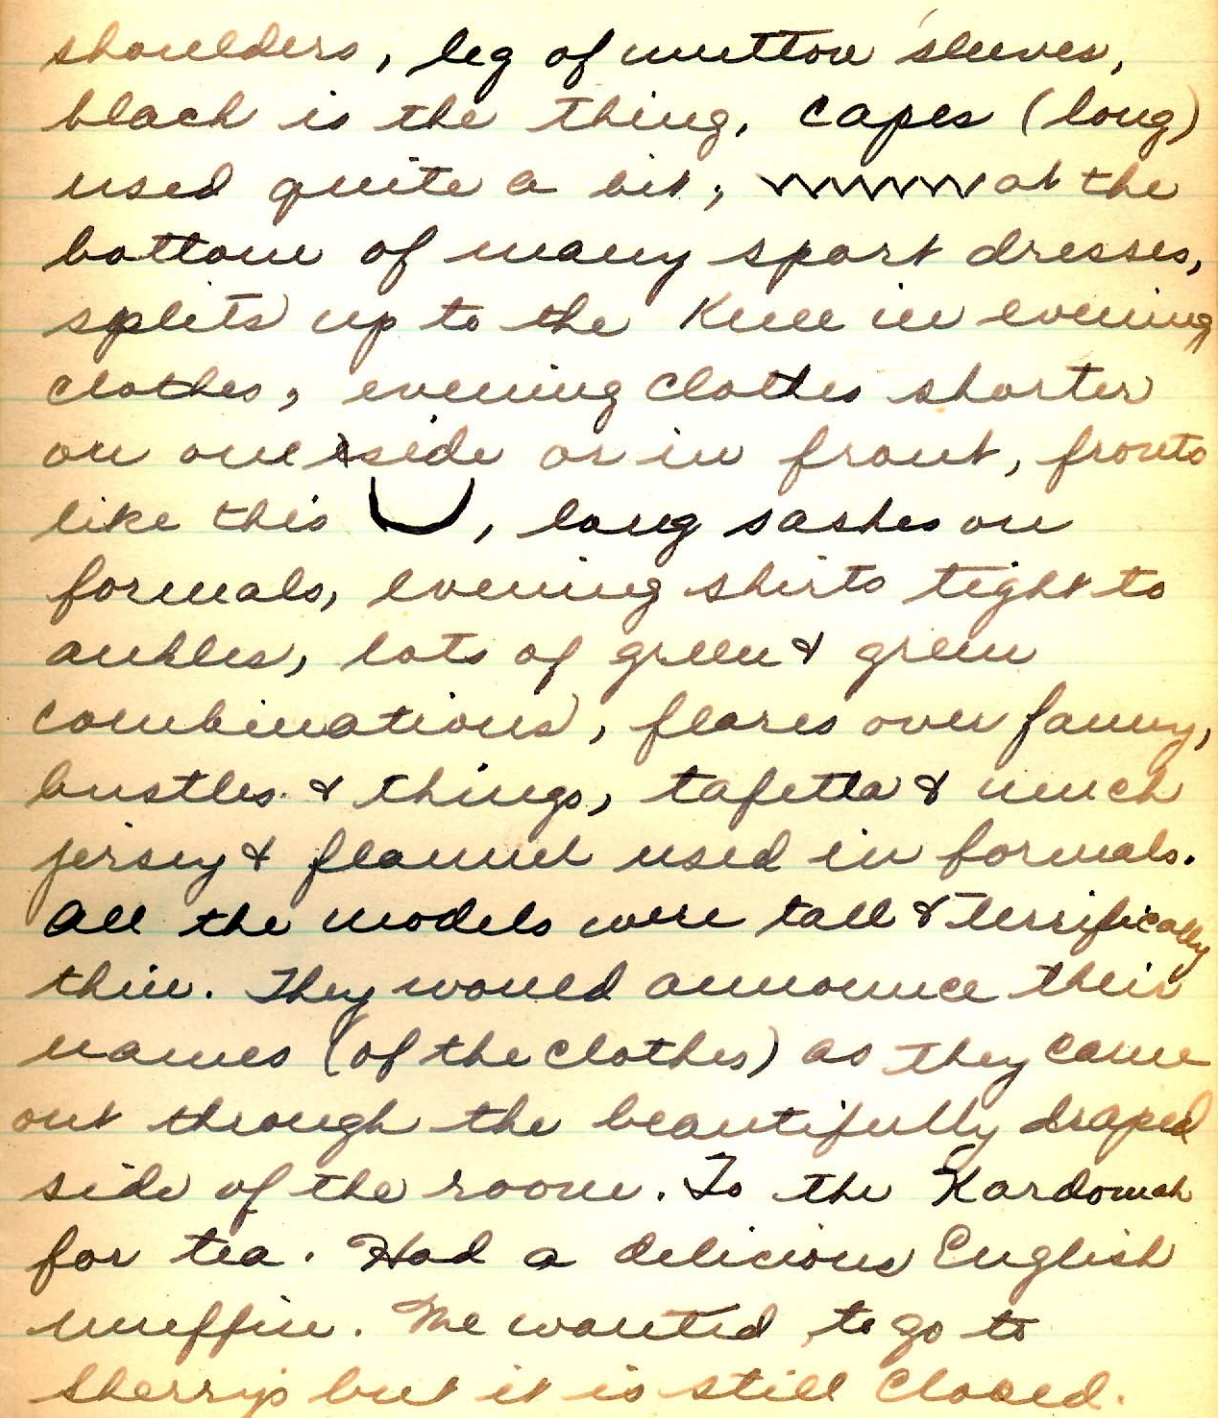 shoulders, leg of mutton sleeves,
black is the thing, capes (long)
used quite a bit, at the
bottom of many sport dresses,
splits up to the knee in evening
clothes, evening clothes shorter
on one side or in front, fronts
like this , long sashes on
formals, evening skirts tight to
ankles, lots of green & green
combinations, flares over fanny,
bustles & things, tafetta & much
jersey & flannel used in formals.
All the models were tall & terrifically
thin. They would announce their
names (of the clothes) as they came
out through the beautifully draped
side of the room. To the Kardomah
for tea. Had a delicious English
muffin. We wanted to go to
Sherry's but it is still closed.